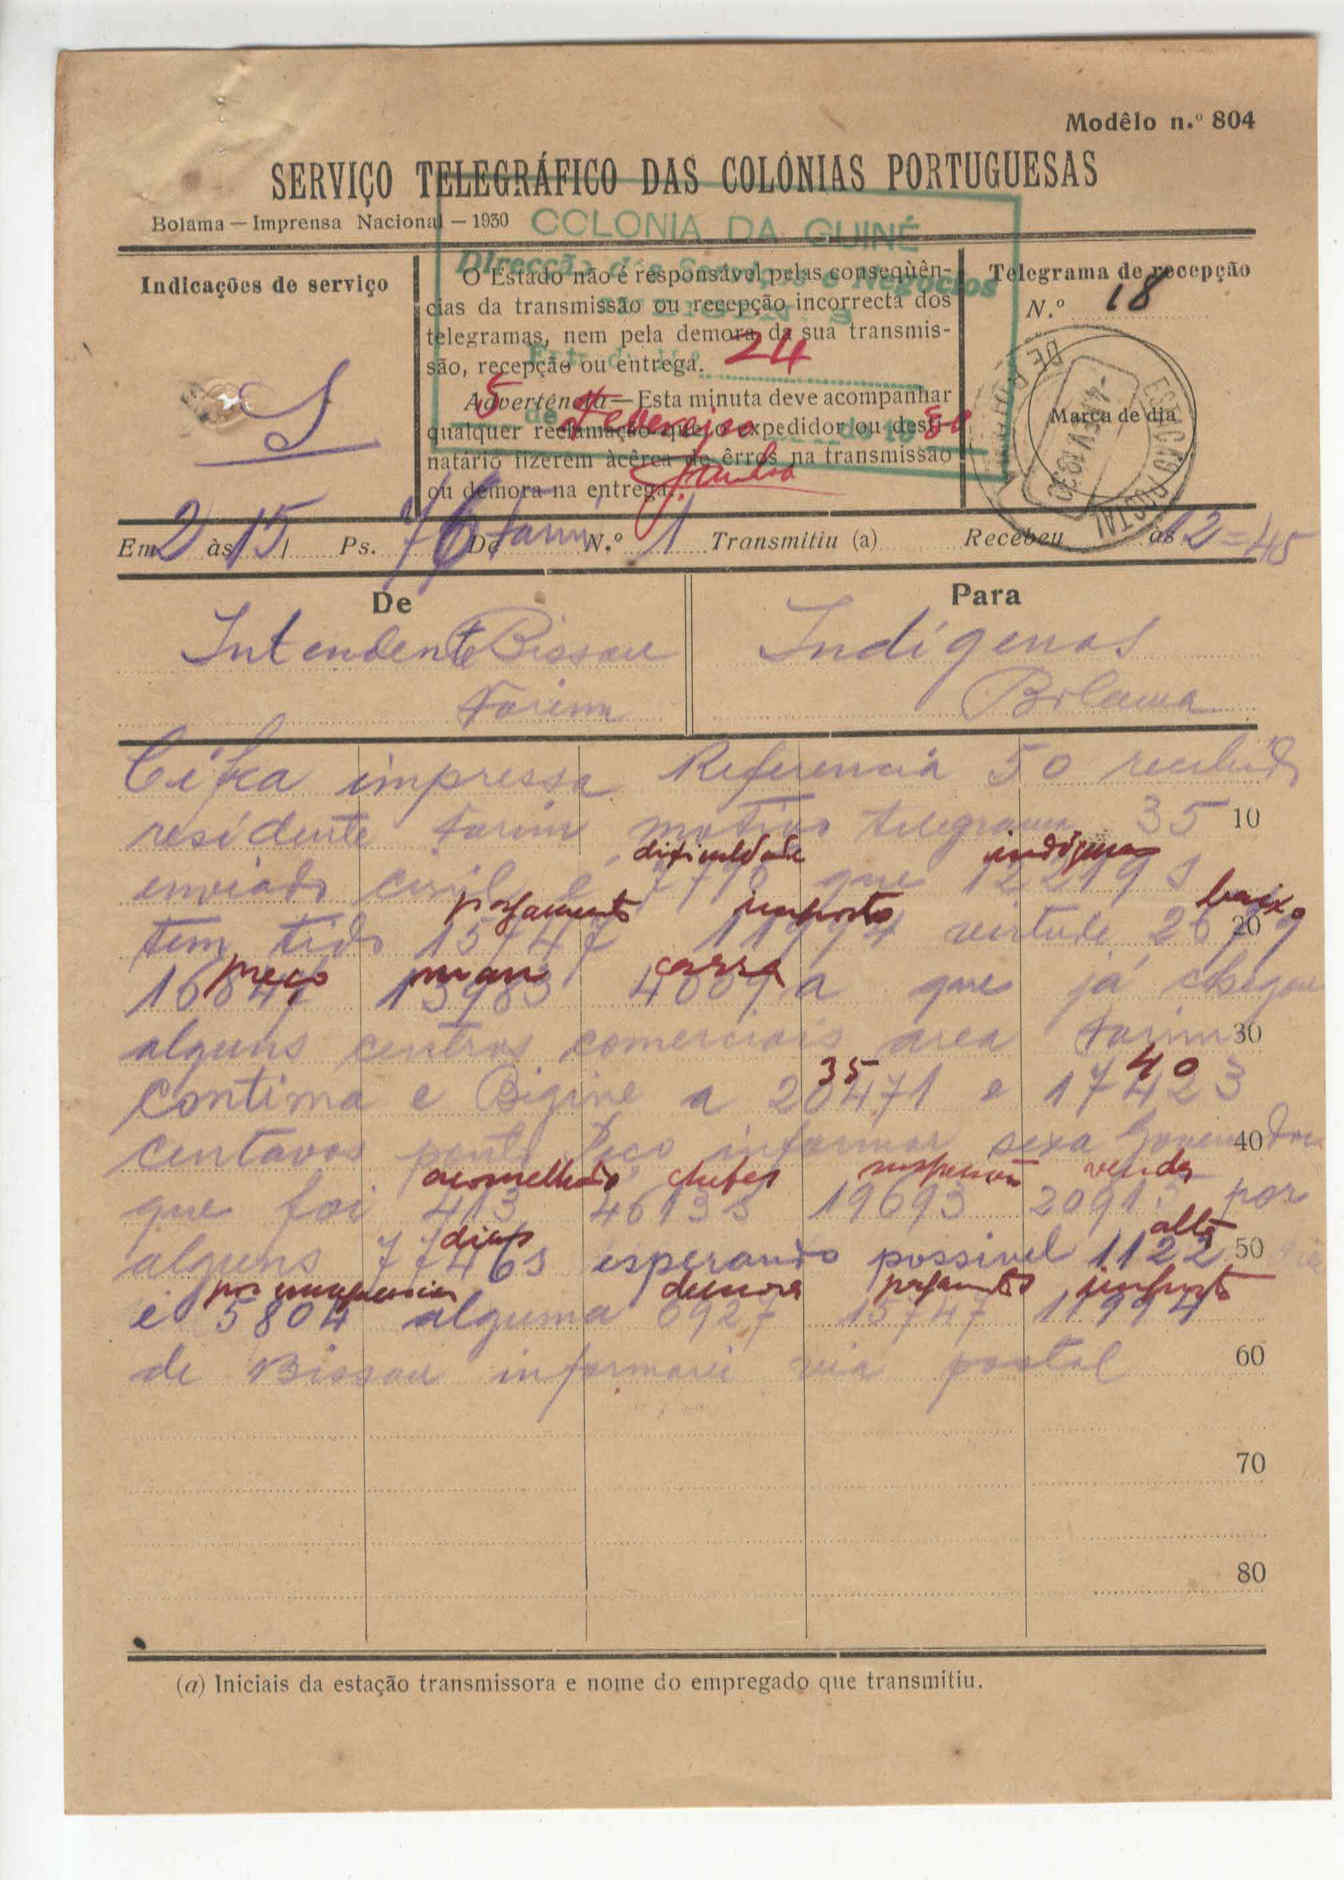 Modêlo n.º 804
SERVIÇO TELEGRÁFICO DAS COLÓNIAS PORTUGUESAS
Bolama — Imprensa Nacional — 1930
COLONIA DA GUINÉ
Direcção dos Serviços e Negócios
Indicações de serviço
S
O Estado não é responsável pelas conseqüên-
cias da transmissão ou recepção incorrecta dos
telegramas, nem pela demora da sua transmis-
são, recepção ou entrega.
24
Advertência — Esta minuta deve acompanhar
qualquer reclamação que o expedidor ou desti-
natário fizerem àcêrca de êrros na transmissão
ou demora na entrega.
5 de Fevereiro de 19
Telegrama de recepção
N.º 18
Marca de dia
ESTAÇÃO POSTAL
Em 2 às 15 Ps. 76 De Farim N.º 1 Transmitiu (a) Recebeu às 12=45
De
Para
Intendente Bissau
Farim
Indígenas
Bolama
Cifra impressa Referencia 50 recebido
residente Farim motivo telegrama 35 10
dificuldade indígenas
enviado que 12219 s
pagamento imposto baixo
tem tido 15747 11994 virtude 2679 20
preço mancarra
16847 13983 4009 a que já chegou
alguns centros comerciais area Farim 30
35 40
Contima e Bigine a 20471 e 17423
centavos ponto Peço informar sexa Governador 40
aconselhado chefes suspensão vendas
que foi 413 46133 19693 2091 por
dias alta
alguns 77463 esperando possivel 1122 50
por consequencia demora pagamento imposto
e 5804 alguma 6927 15747 11994
de Bissau informarei via postal 60
70
80
(a) Iniciais da estação transmissora e nome do empregado que transmitiu.